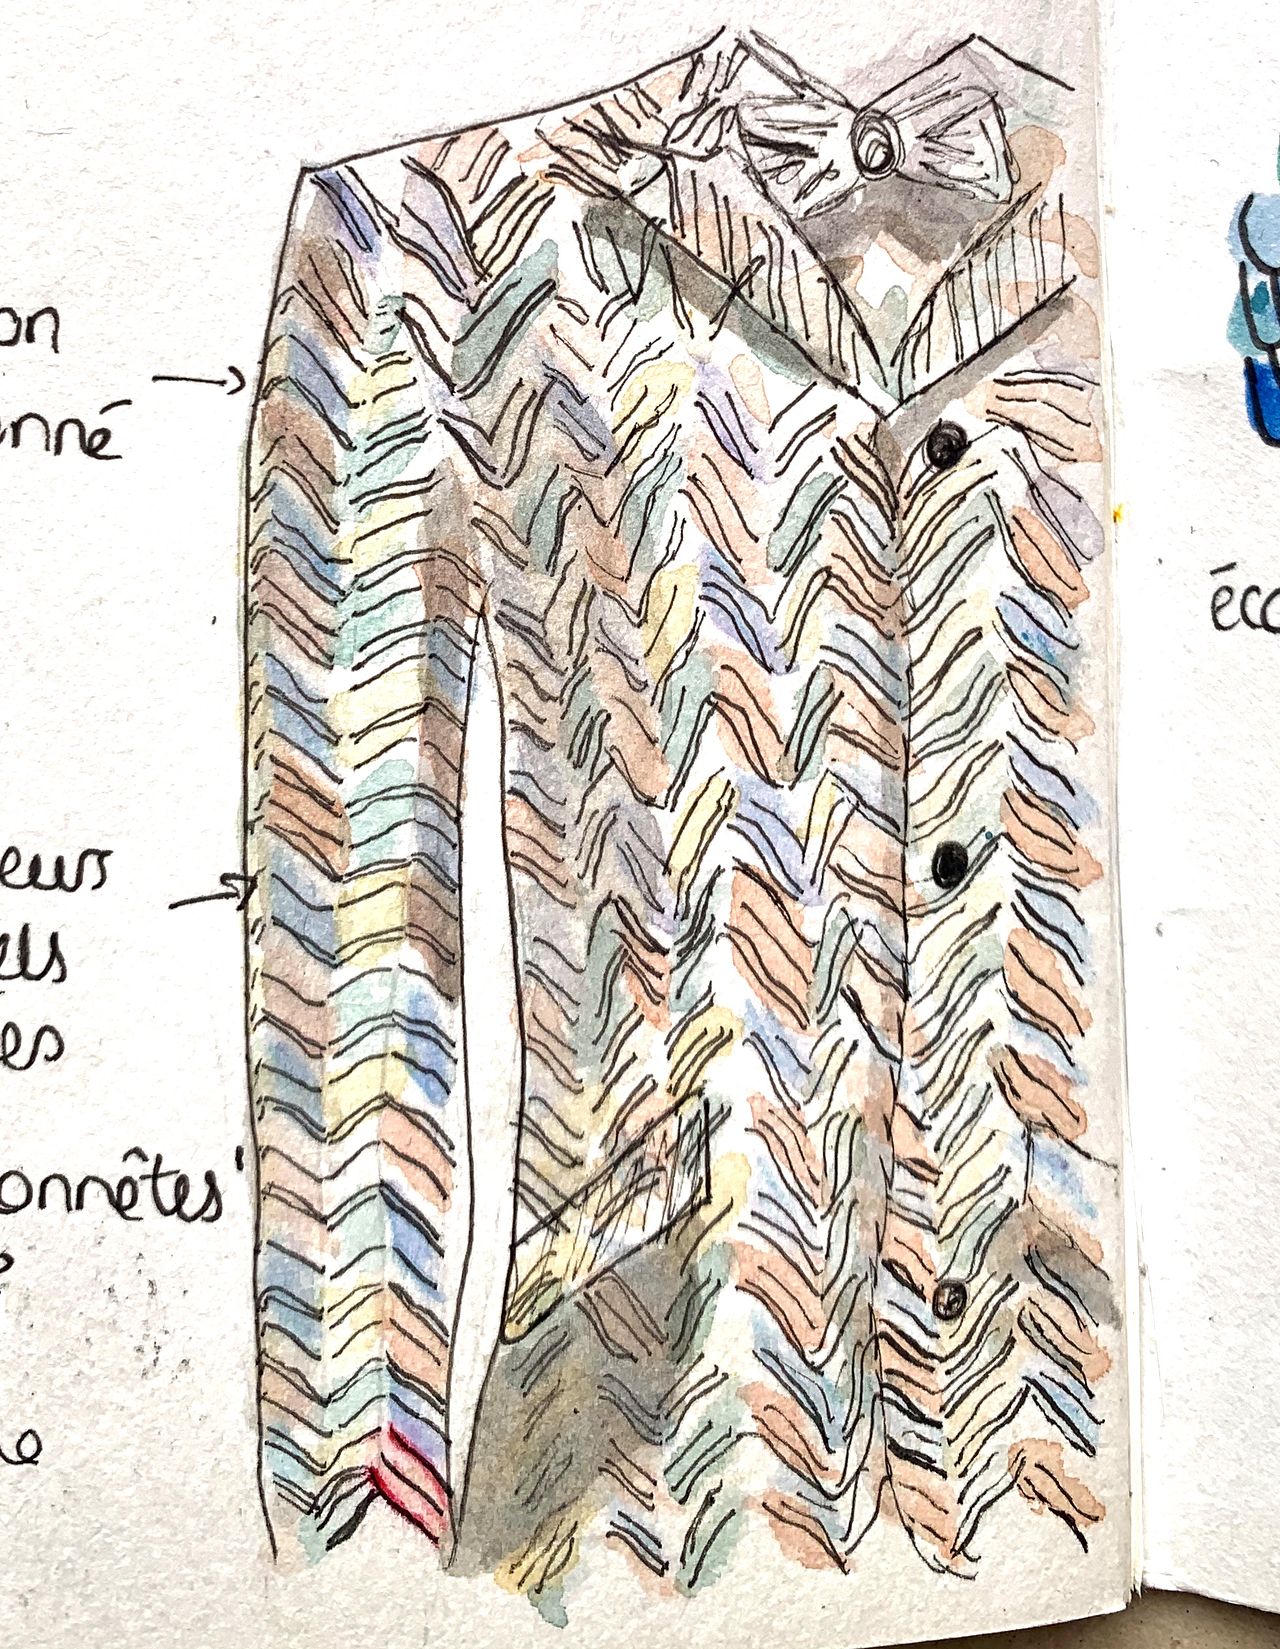 on
nné
eurs
els
es
onnêtes'
éco